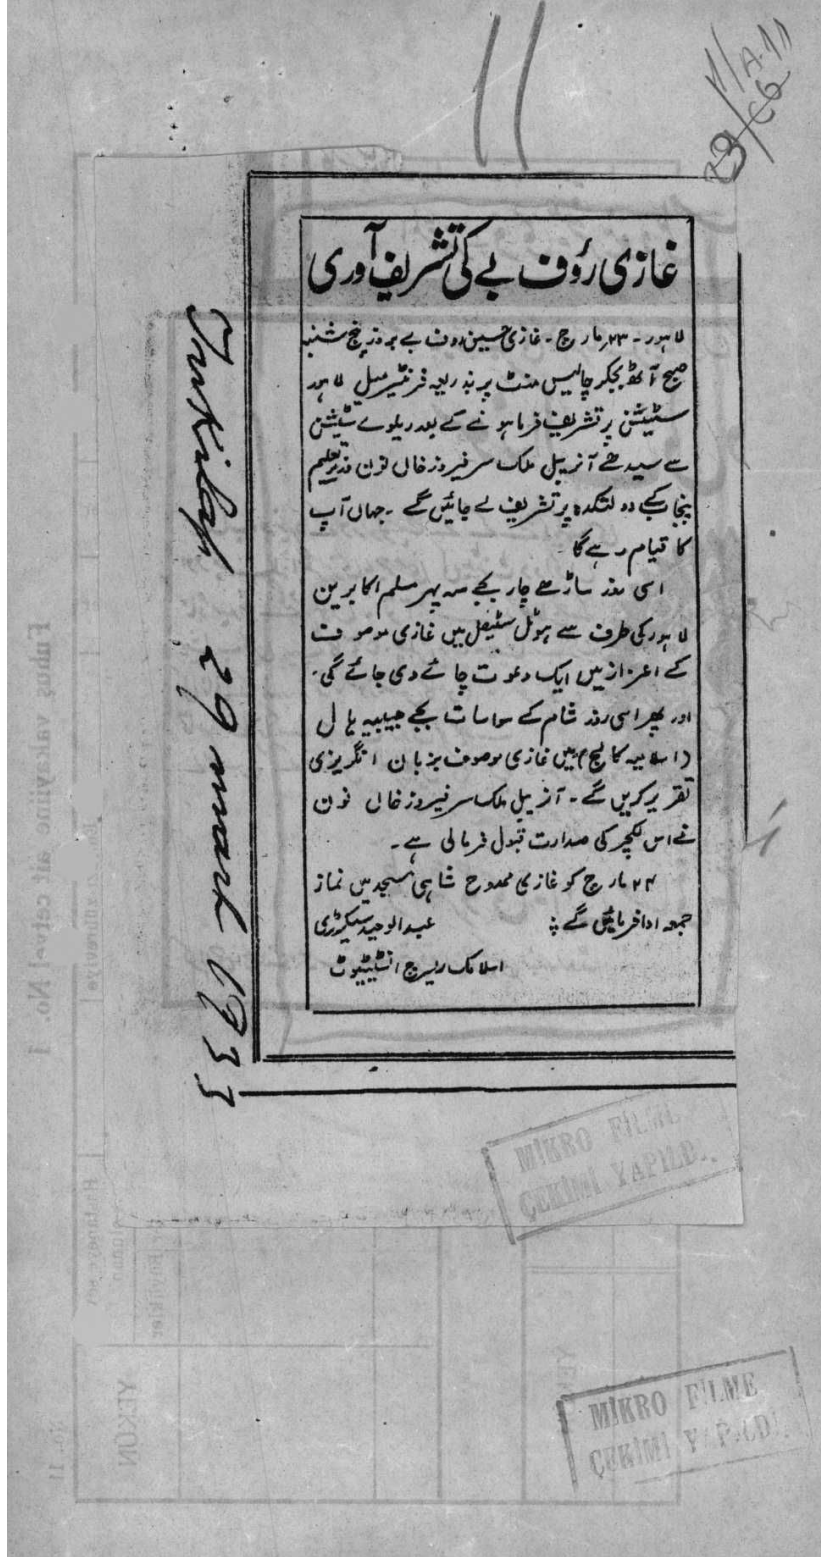 11
غازی رؤف بے کی تشریف آوری
لاہور۔ ۲۳؍مارچ۔ غازی حسین رؤف بے بروز پنج شنبہ
صبح آٹھ بجکر چالیس منٹ پر بذریعہ فرنٹیر میل لاہور
سٹیشن پر تشریف فرما ہونے کے بعد ریلوے سٹیشن
سے سیدھے آنریبل ملک سر فیروز خاں نون وزیر تعلیم
پنجاب کے دولتکدہ پر تشریف لے جائیں گے۔ جہاں آپ
کا قیام رہے گا۔
اسی روز ساڑھے چار بجے سہ پہر مسلم اکابرین
لاہور کی طرف سے ہوٹل سٹیفل میں غازی موصوف
کے اعزاز میں ایک دعوت چائے دی جائے گی۔
اور پھر اسی روز شام کے سوا سات بجے حبیبیہ ہال
(اسلامیہ کالج) میں غازی موصوف بزبان انگریزی
تقریر کریں گے۔ آنریبل ملک سر فیروز خاں نون
نے اس لکچر کی صدارت قبول فرمالی ہے۔
۲۴ مارچ کو غازی ممدوح شاہی مسجد میں نماز
جمعہ ادا فرمائیں گے۔ عبدالوحید سیکرٹری
اسلامک ریسرچ انسٹیٹیوٹ
Inkilap 29 mart 1933
MİKRO FİLME
ÇEKİMİ YAPILDI.
MİKRO FİLME
ÇEKİMİ YAPILDI.
Fuhuş vakayiine ait cetvel No. 1
YEKÛN